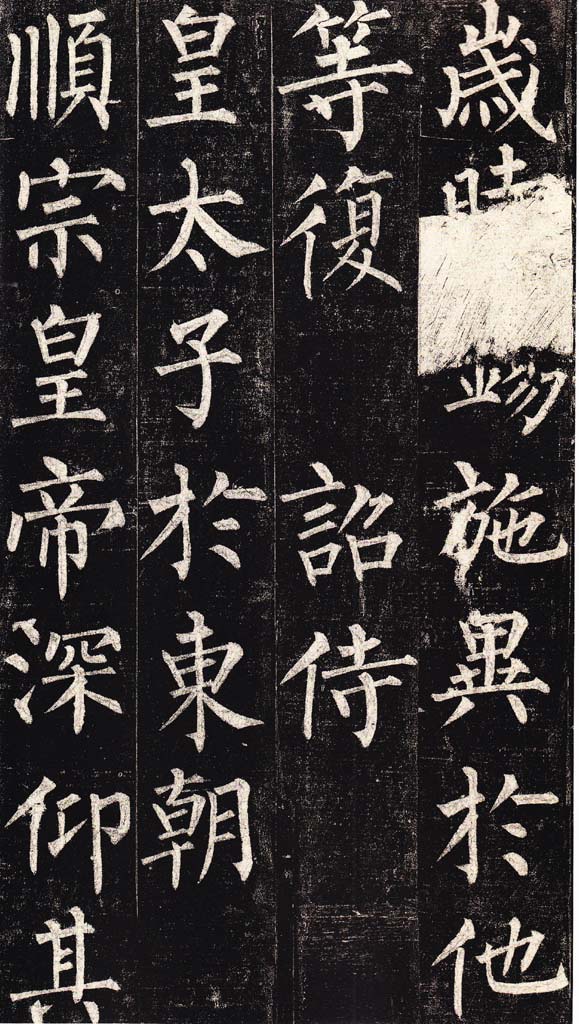 歲時錫施異於他
等復 詔侍
皇太子於東朝
順宗皇帝深仰其